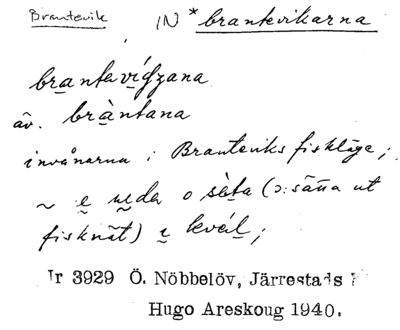 Brantevik IN *brantevikarna
brantavígzana
äv. bràntana
invånarna i Branteviks fiskläge;
~ e ude o sèta (ɔ: sätta ut
fisknät) i kvéll;
Ir 3929 Ö. Nöbbelöv, Järrestads
Hugo Areskoug 1940.